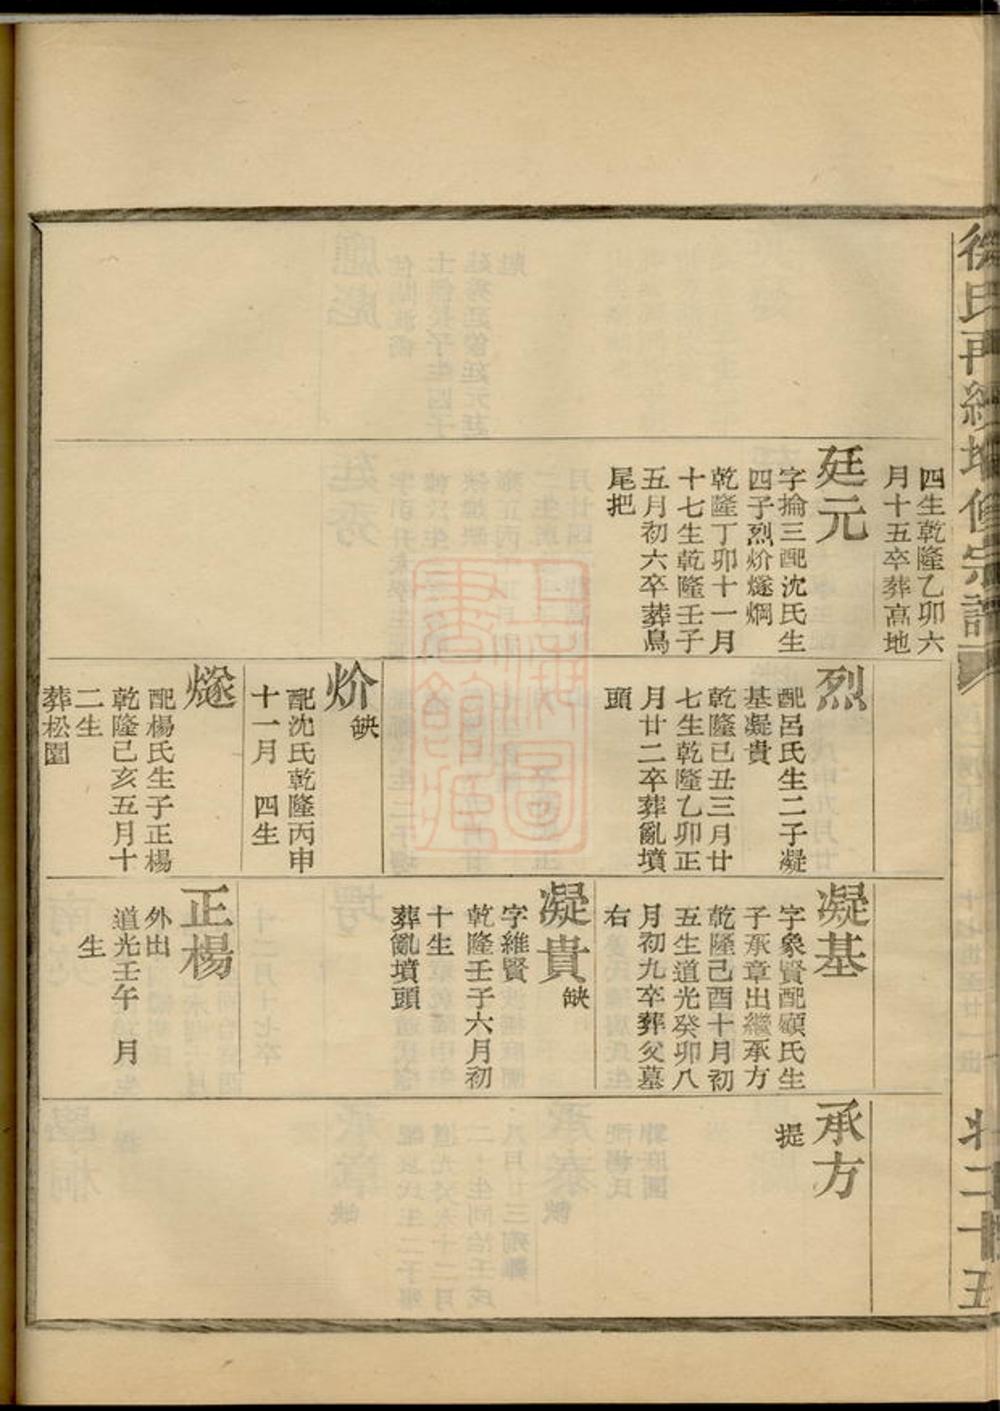 徐氏再續增修宗譜
卅二十五
四生乾隆乙卯六
月十五卒葬高地
廷元
字掄三配沈氏生
四子烈炌燧烱
乾隆丁卯十一月
十七生乾隆壬子
五月初六卒葬鳥
尾把
烈
配呂氏生二子凝
基凝貴
乾隆己丑三月廿
七生乾隆乙卯正
月廿二卒葬亂墳
頭
炌
缺
配沈氏乾隆丙申
十一月 四生
燧
配楊氏生子正楊
乾隆己亥五月十
二生
葬松園
凝基
字象賢配顧氏生
子承章出繼承方
乾隆己酉十月初
五生道光癸卯八
月初九卒葬父墓
右
凝貴
缺
字維賢
乾隆壬子六月初
十生
葬亂墳頭
正楊
外出
道光壬午 月
生
承方
提